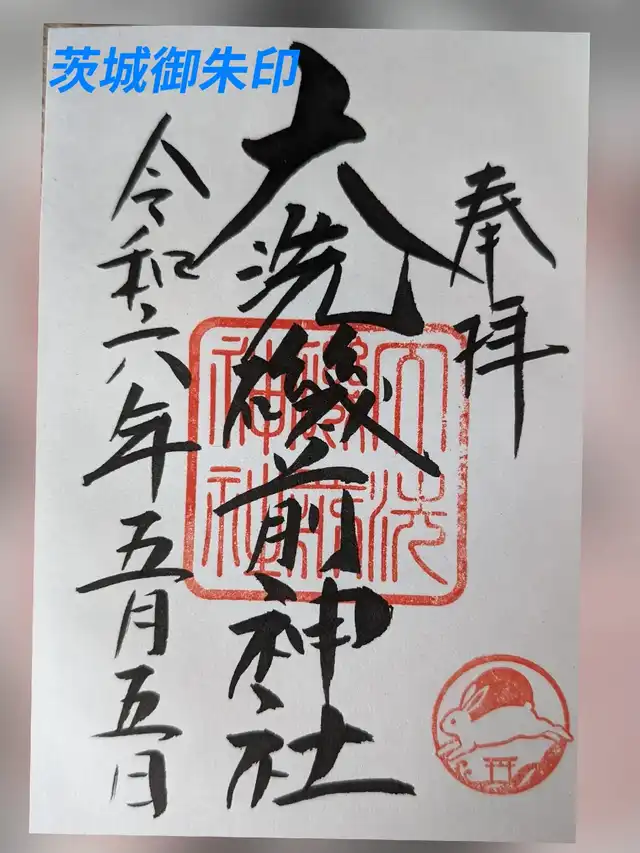 茨城御朱印
奉拝
大洗磯前神社
令和六年五月五日
大洗
磯前
神社